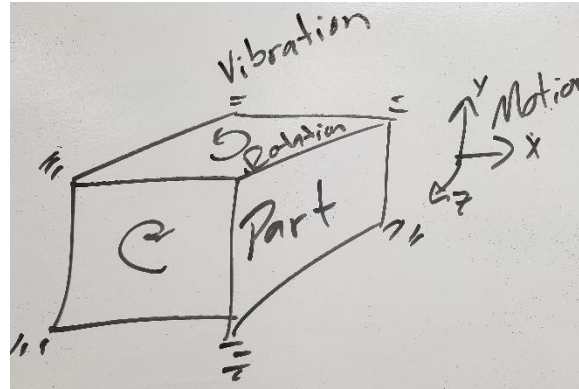 Vibration
Rotation
Part
Y
Motion
X
Z